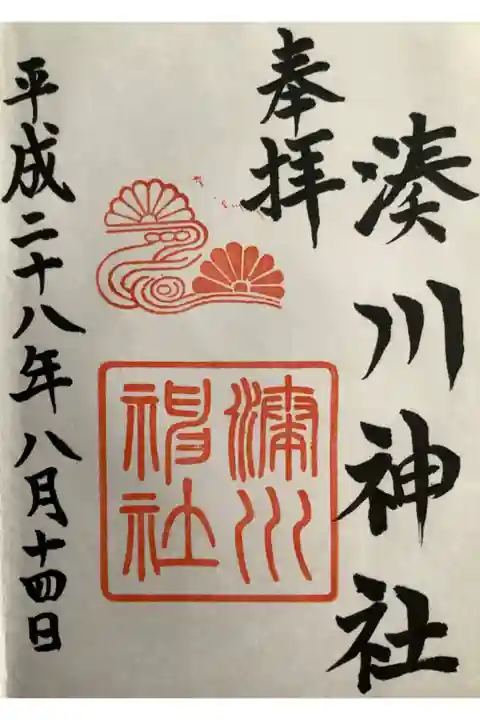 奉拝
湊川神社
湊川神社
平成二十八年八月十四日